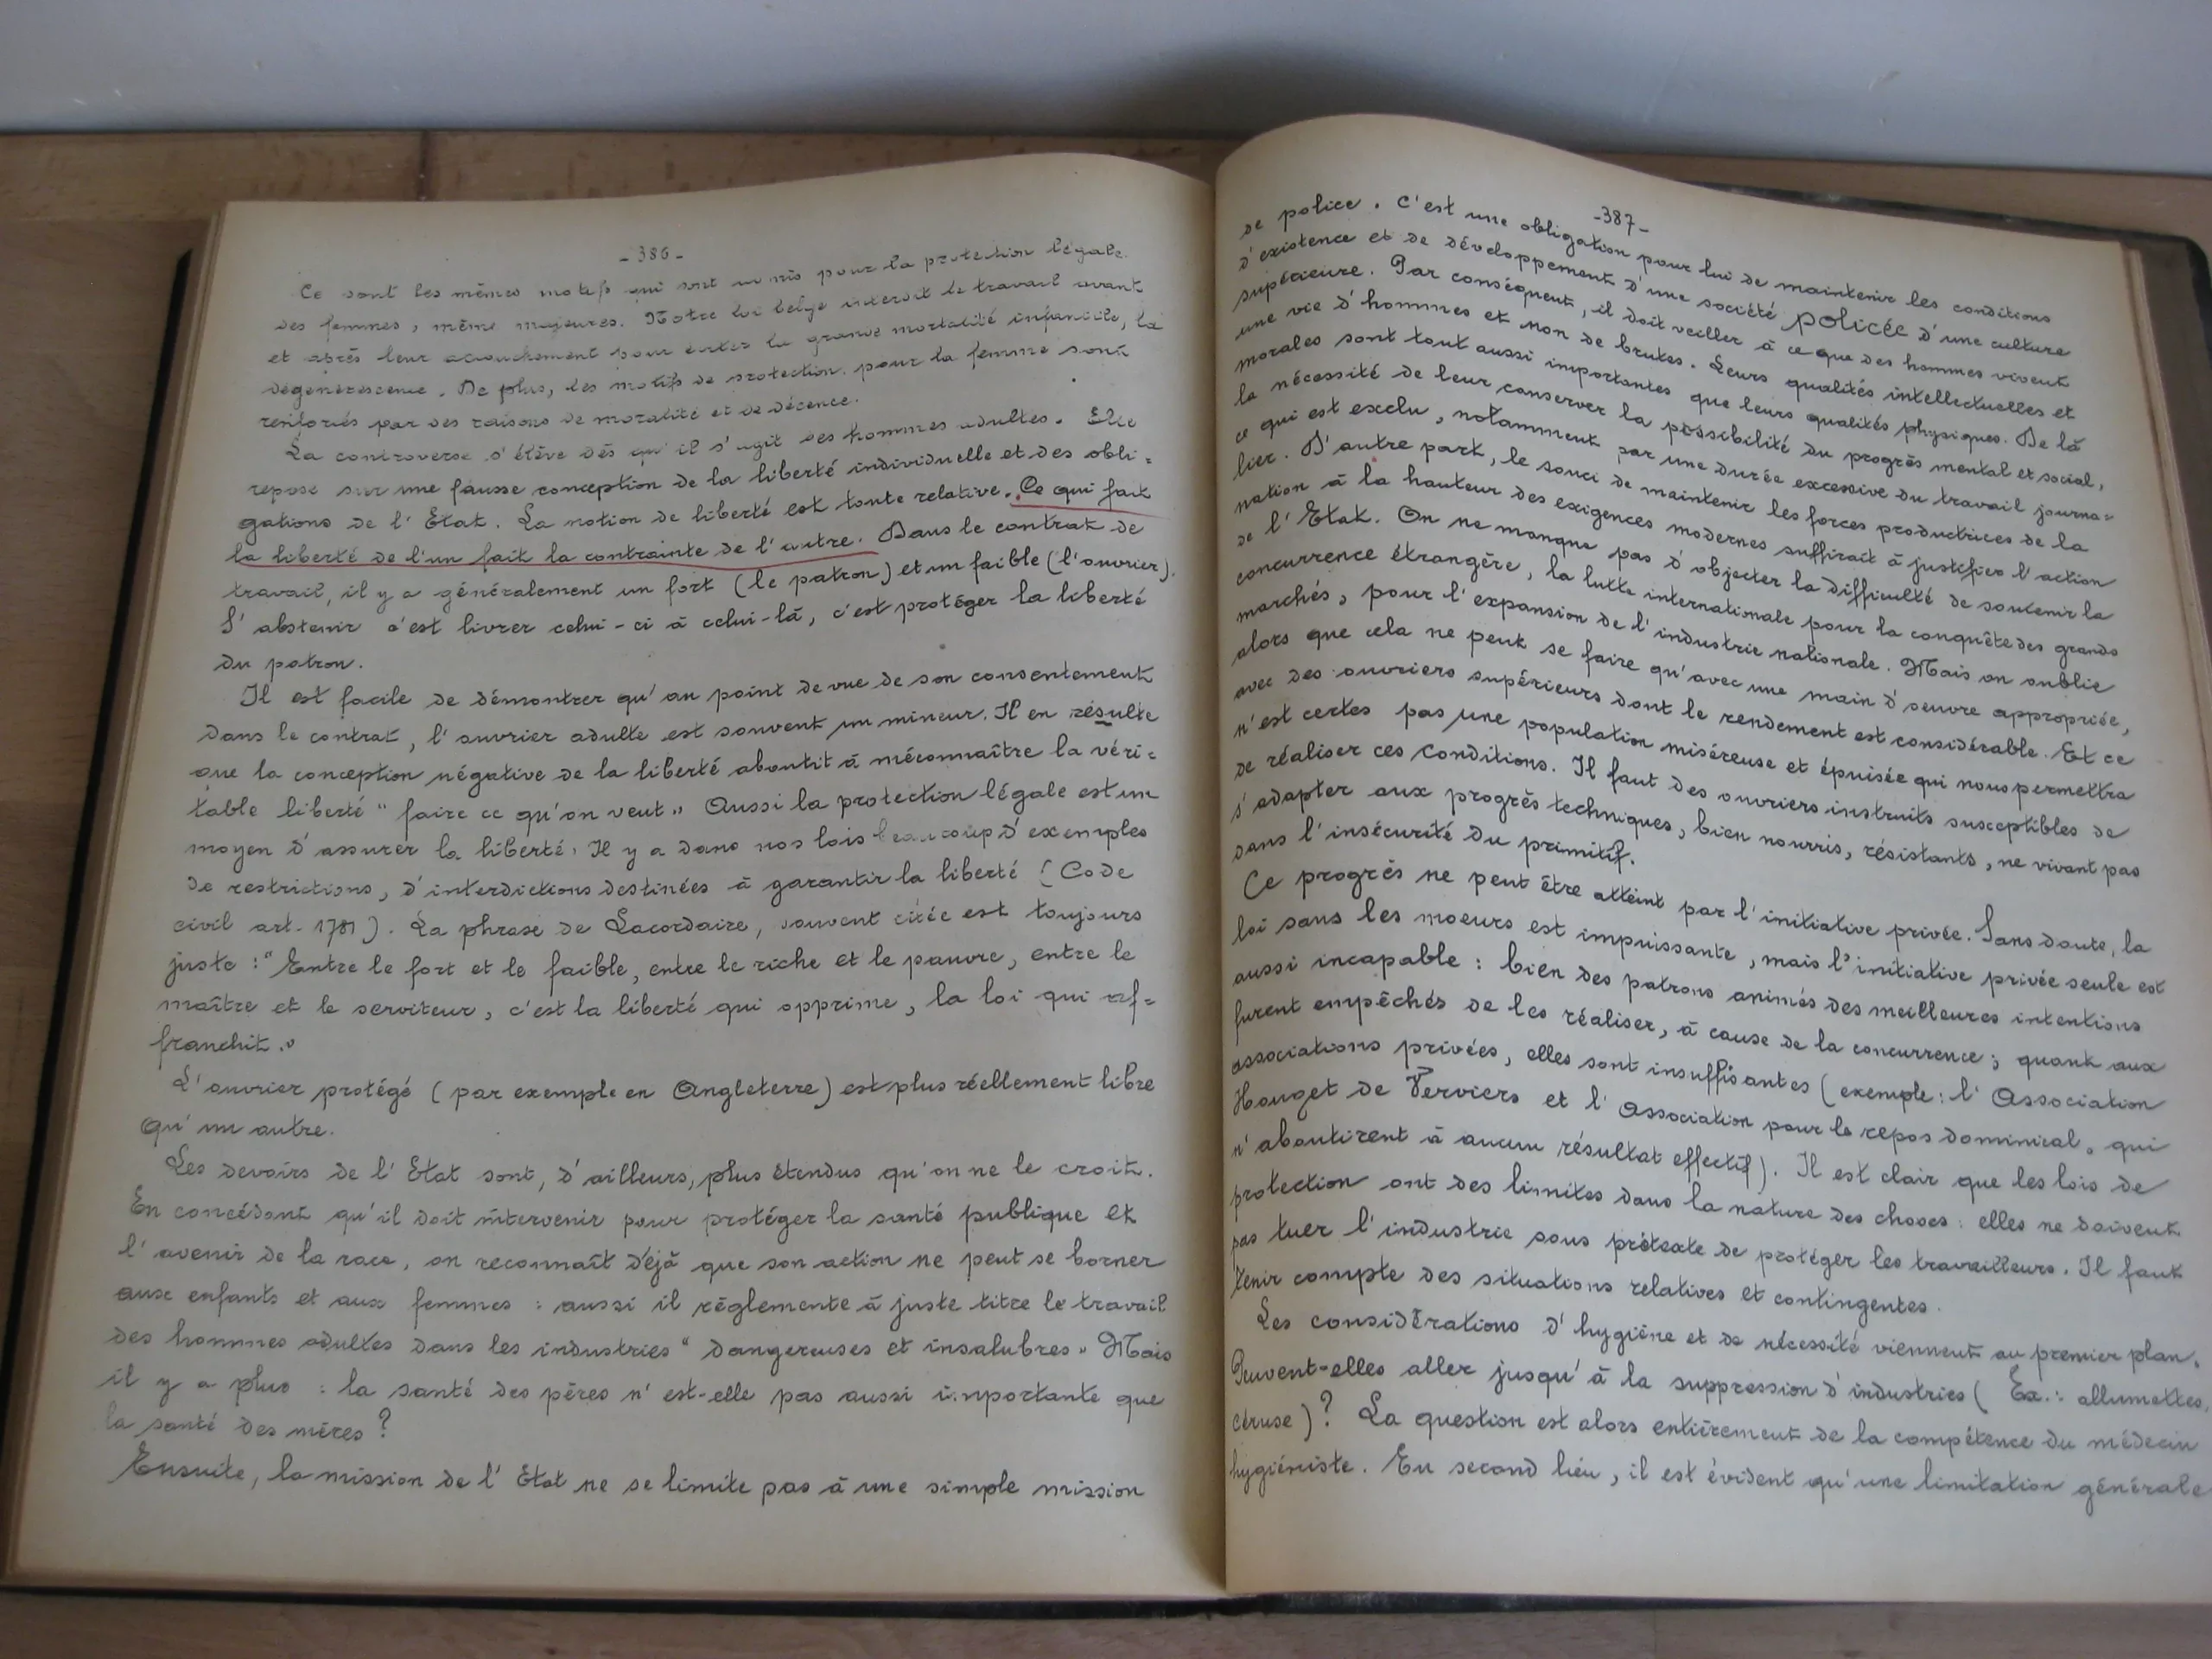 - 386 -
Ce sont les mêmes motifs qui sont pour la protection légale
des femmes, même majeures. Notre loi belge interdit le travail avant
et après leur accouchement pour éviter la grande mortalité infantile, la
dégénérescence. De plus, les motifs de protection pour la femme sont
renforcés par des raisons de moralité et de décence.
La controverse s'élève dès qu'il s'agit des hommes adultes. Elle
repose sur une fausse conception de la liberté individuelle et des obli=
gations de l'Etat. La notion de liberté est toute relative. Ce qui fait
la liberté de l'un fait la contrainte de l'autre. Dans le contrat de
travail, il y a généralement un fort (le patron) et un faible (l'ouvrier).
S'abstenir c'est livrer celui-ci à celui-là, c'est protéger la liberté
du patron.
Il est facile de démontrer qu'au point de vue de son consentement
dans le contrat, l'ouvrier adulte est souvent un mineur. Il en résulte
que la conception négative de la liberté aboutit à méconnaître la véri=
table liberté "faire ce qu'on veut" Aussi la protection légale est un
moyen d'assurer la liberté. Il y a dans nos lois beaucoup d'exemples
de restrictions, d'interdictions destinées à garantir la liberté (Code
civil art. 1781). La phrase de Lacordaire, souvent citée est toujours
juste : "Entre le fort et le faible, entre le riche et le pauvre, entre le
maître et le serviteur, c'est la liberté qui opprime, la loi qui af=
franchit."
L'ouvrier protégé (par exemple en Angleterre) est plus réellement libre
qu'un autre.
Les devoirs de l'Etat sont, d'ailleurs, plus étendus qu'on ne le croit.
En concédant qu'il doit intervenir pour protéger la santé publique et
l'avenir de la race, on reconnaît déjà que son action ne peut se borner
aux enfants et aux femmes : aussi il réglemente à juste titre le travail
des hommes adultes dans les industries "dangereuses et insalubres" Mais
il y a plus : la santé des pères n'est-elle pas aussi importante que
la santé des mères ?
Ensuite, la mission de l'Etat ne se limite pas à une simple mission
-387-
de police. C'est une obligation pour lui de maintenir les conditions
d'existence et de développement d'une société policée d'une culture
supérieure. Par conséquent, il doit veiller à ce que des hommes vivent
une vie d'hommes et non de brutes. Leurs qualités intellectuelles et
morales sont tout aussi importantes que leurs qualités physiques. De là
la nécessité de leur conserver la possibilité du progrès mental et social,
ce qui est exclu, notamment par une durée excessive du travail journa=
lier. D'autre part, le souci de maintenir les forces productrices de la
nation à la hauteur des exigences modernes suffirait à justifier l'action
de l'Etat. On ne manque pas d'objecter la difficulté de soutenir la
concurrence étrangère, la lutte internationale pour la conquête des grands
marchés, pour l'expansion de l'industrie nationale. Mais on oublie
alors que cela ne peut se faire qu'avec une main d'oeuvre appropriée,
avec des ouvriers supérieurs dont le rendement est considérable. Et ce
n'est certes pas une population miséreuse et épuisée qui nous permettra
de réaliser ces conditions. Il faut des ouvriers instruits susceptibles de
s'adapter aux progrès techniques, bien nourris, résistants, ne vivant pas
dans l'insécurité du primitif.
Ce progrès ne peut être atteint par l'initiative privée. Sans doute, la
loi sans les moeurs est impuissante, mais l'initiative privée seule est
aussi incapable : bien des patrons animés des meilleures intentions
furent empêchés de les réaliser, à cause de la concurrence ; quant aux
associations privées, elles sont insuffisantes (exemple : l'Association
Houget de Verviers et l'Association pour le repos dominical, qui
n'aboutirent à aucun résultat effectif). Il est clair que les lois de
protection ont des limites dans la nature des choses : elles ne doivent
pas tuer l'industrie sous prétexte de protéger les travailleurs. Il faut
tenir compte des situations relatives et contingentes.
Les considérations d'hygiène et de nécessité viennent au premier plan.
Peuvent-elles aller jusqu'à la suppression d'industries (Ex.: allumettes,
céruse) ? La question est alors entièrement de la compétence du médecin
hygiéniste. En second lieu, il est évident qu'une limitation générale